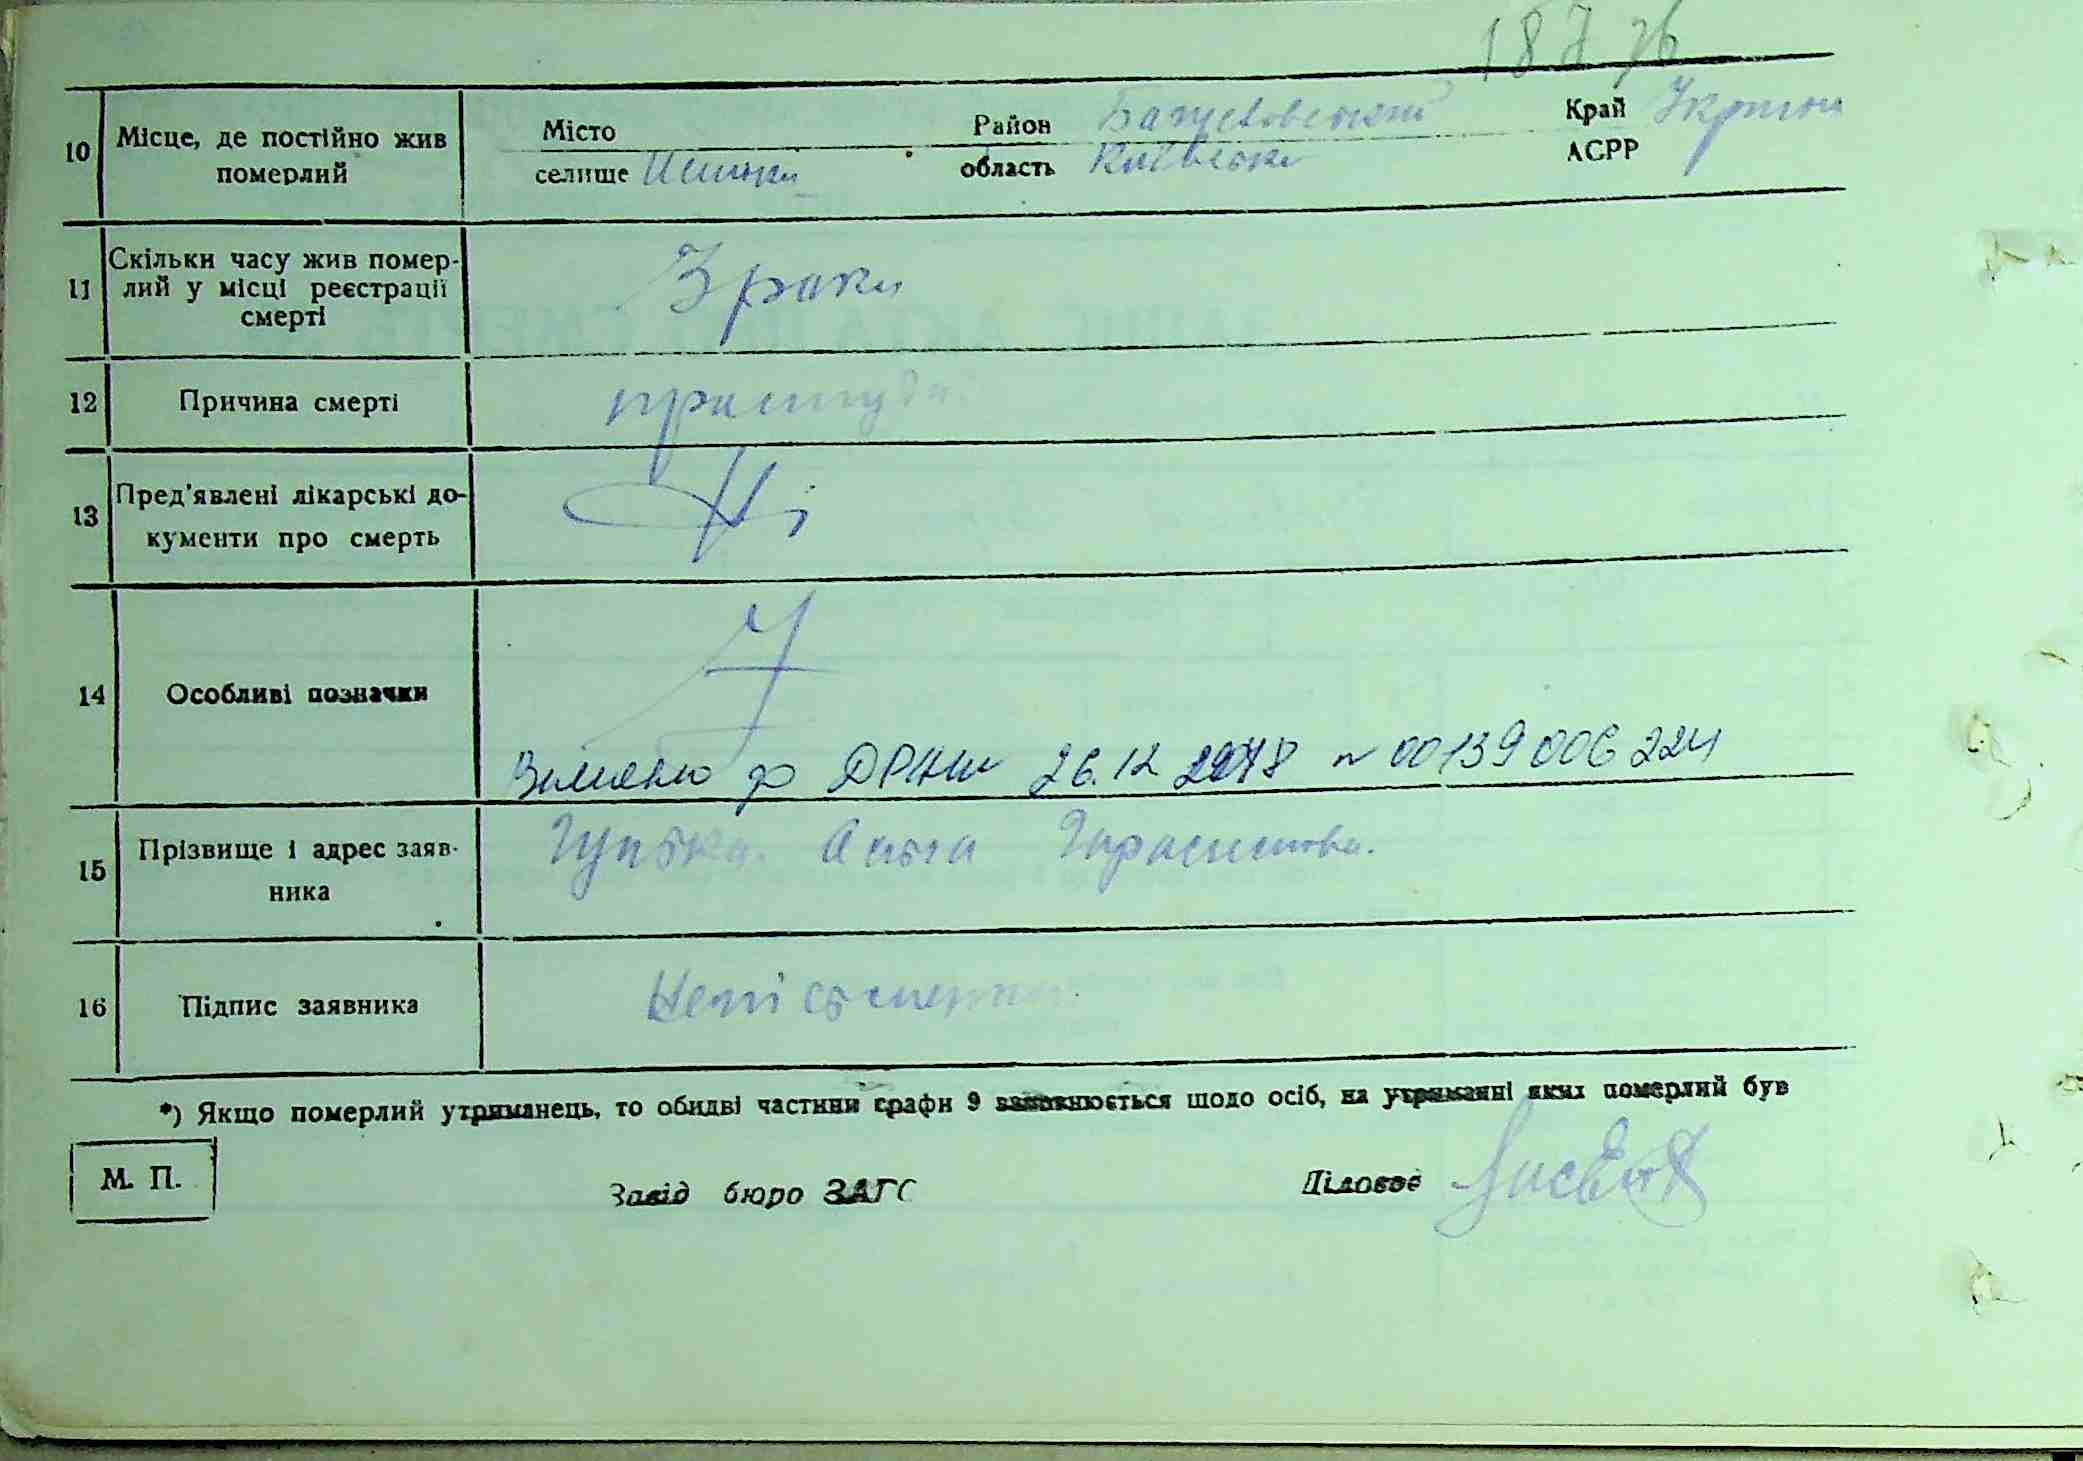 187 76
10 Місце, де постійно жив Місто Район Край
померлий селище область Київська АСРР
11 Скільки часу жив помер-
лий у місці реєстрації
смерті
3 роки
12 Причина смерті простуда
13 Пред'явлені лікарські до-
кументи про смерть
Ні
14 Особливі позначки
26.12 2018 № 00139006224
15 Прізвище і адрес заяв-
ника
16 Підпис заявника
*) Якщо померлий утриманець, то обидві частини графи 9 заповнюється щодо осіб, на утриманні яких померлий був
М. П.
Завід бюро ЗАГС Діловод